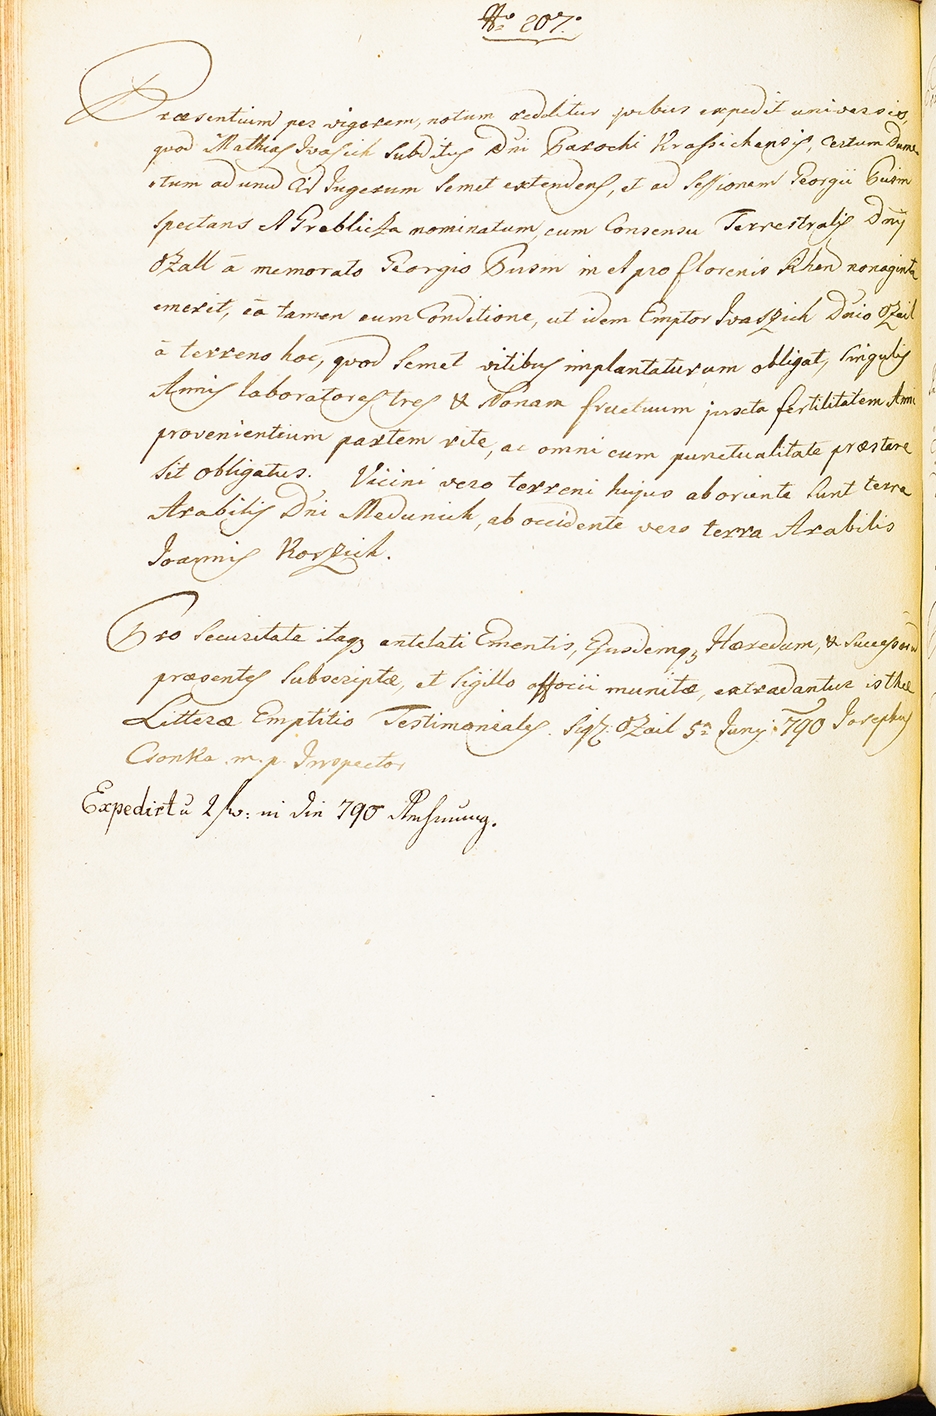 No 207.
Præsentium per vigorem, notum redditur quibus expedit universis,
quod Mathias Ivasich Subditus Dni Parochi Krassichensis, certum Dume-
-tum ad unu Cis Jugerum Semet extendens, et ad Sessionem Georgii Busm
Spectans A Grablicza nominatum, cum Consensu Terrestralis Dnÿ
Ozall â memorato Georgio Busm in et pro florenis Rhen nonaginta
emerit, eâ tamen cum Conditione, ut idem Emptor Ivaszich Dnio Ozail
â terreno hoc, quod Semet vitibus implantaturum obligat, Singulis
Annis laboratores tres & Nonam fructuum juxta fertilitatem Anni
provenientium partem rite, ac omni cum punctualitate præstare
Sit obligatus. Vicini vero terreni hujus ab oriente Sunt terra
Arabilis Dni Medunich, ab occidente vero terra Arabilis
Joannis Korzich.
Pro Securitate itaq3 antelati Ementis, Ejusdemq3 Hæredum, & Successorū
præsentes Subscriptæ, et Sigillo officii munitæ, extradantur isthæ
Litteræ Emptitio Testimoniales. Sigl. Ozail 5a Junÿ 790 Josephus
Csonka m. p. Inspector
Expedirt ū in 790